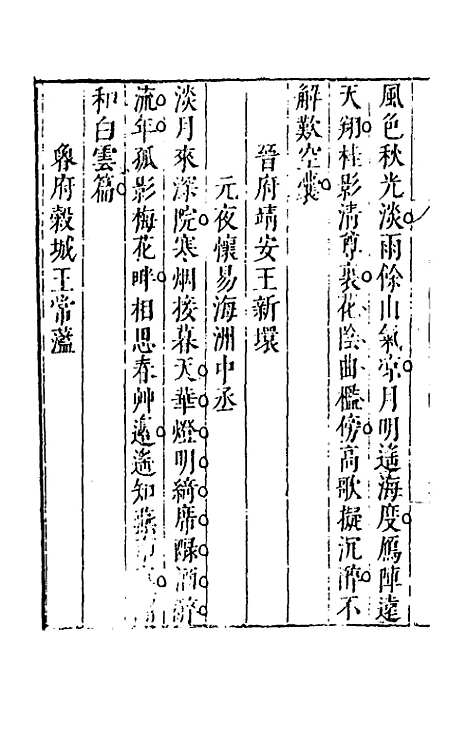 風色秋光淡雨餘山氣凉月明遙海度鴈陣遠
天翔桂影清尊裛花陰曲檻傍高歌擬沉醉不
解歎空囊
晉府靖安王新環
元夜懷易海洲中丞
淡月來深院寒烟接暮天華燈明綺席醁酒醉
流年孤影梅花畔相思春艸邊遙知燕
和白雲篇
魯府穀城王常𣿰